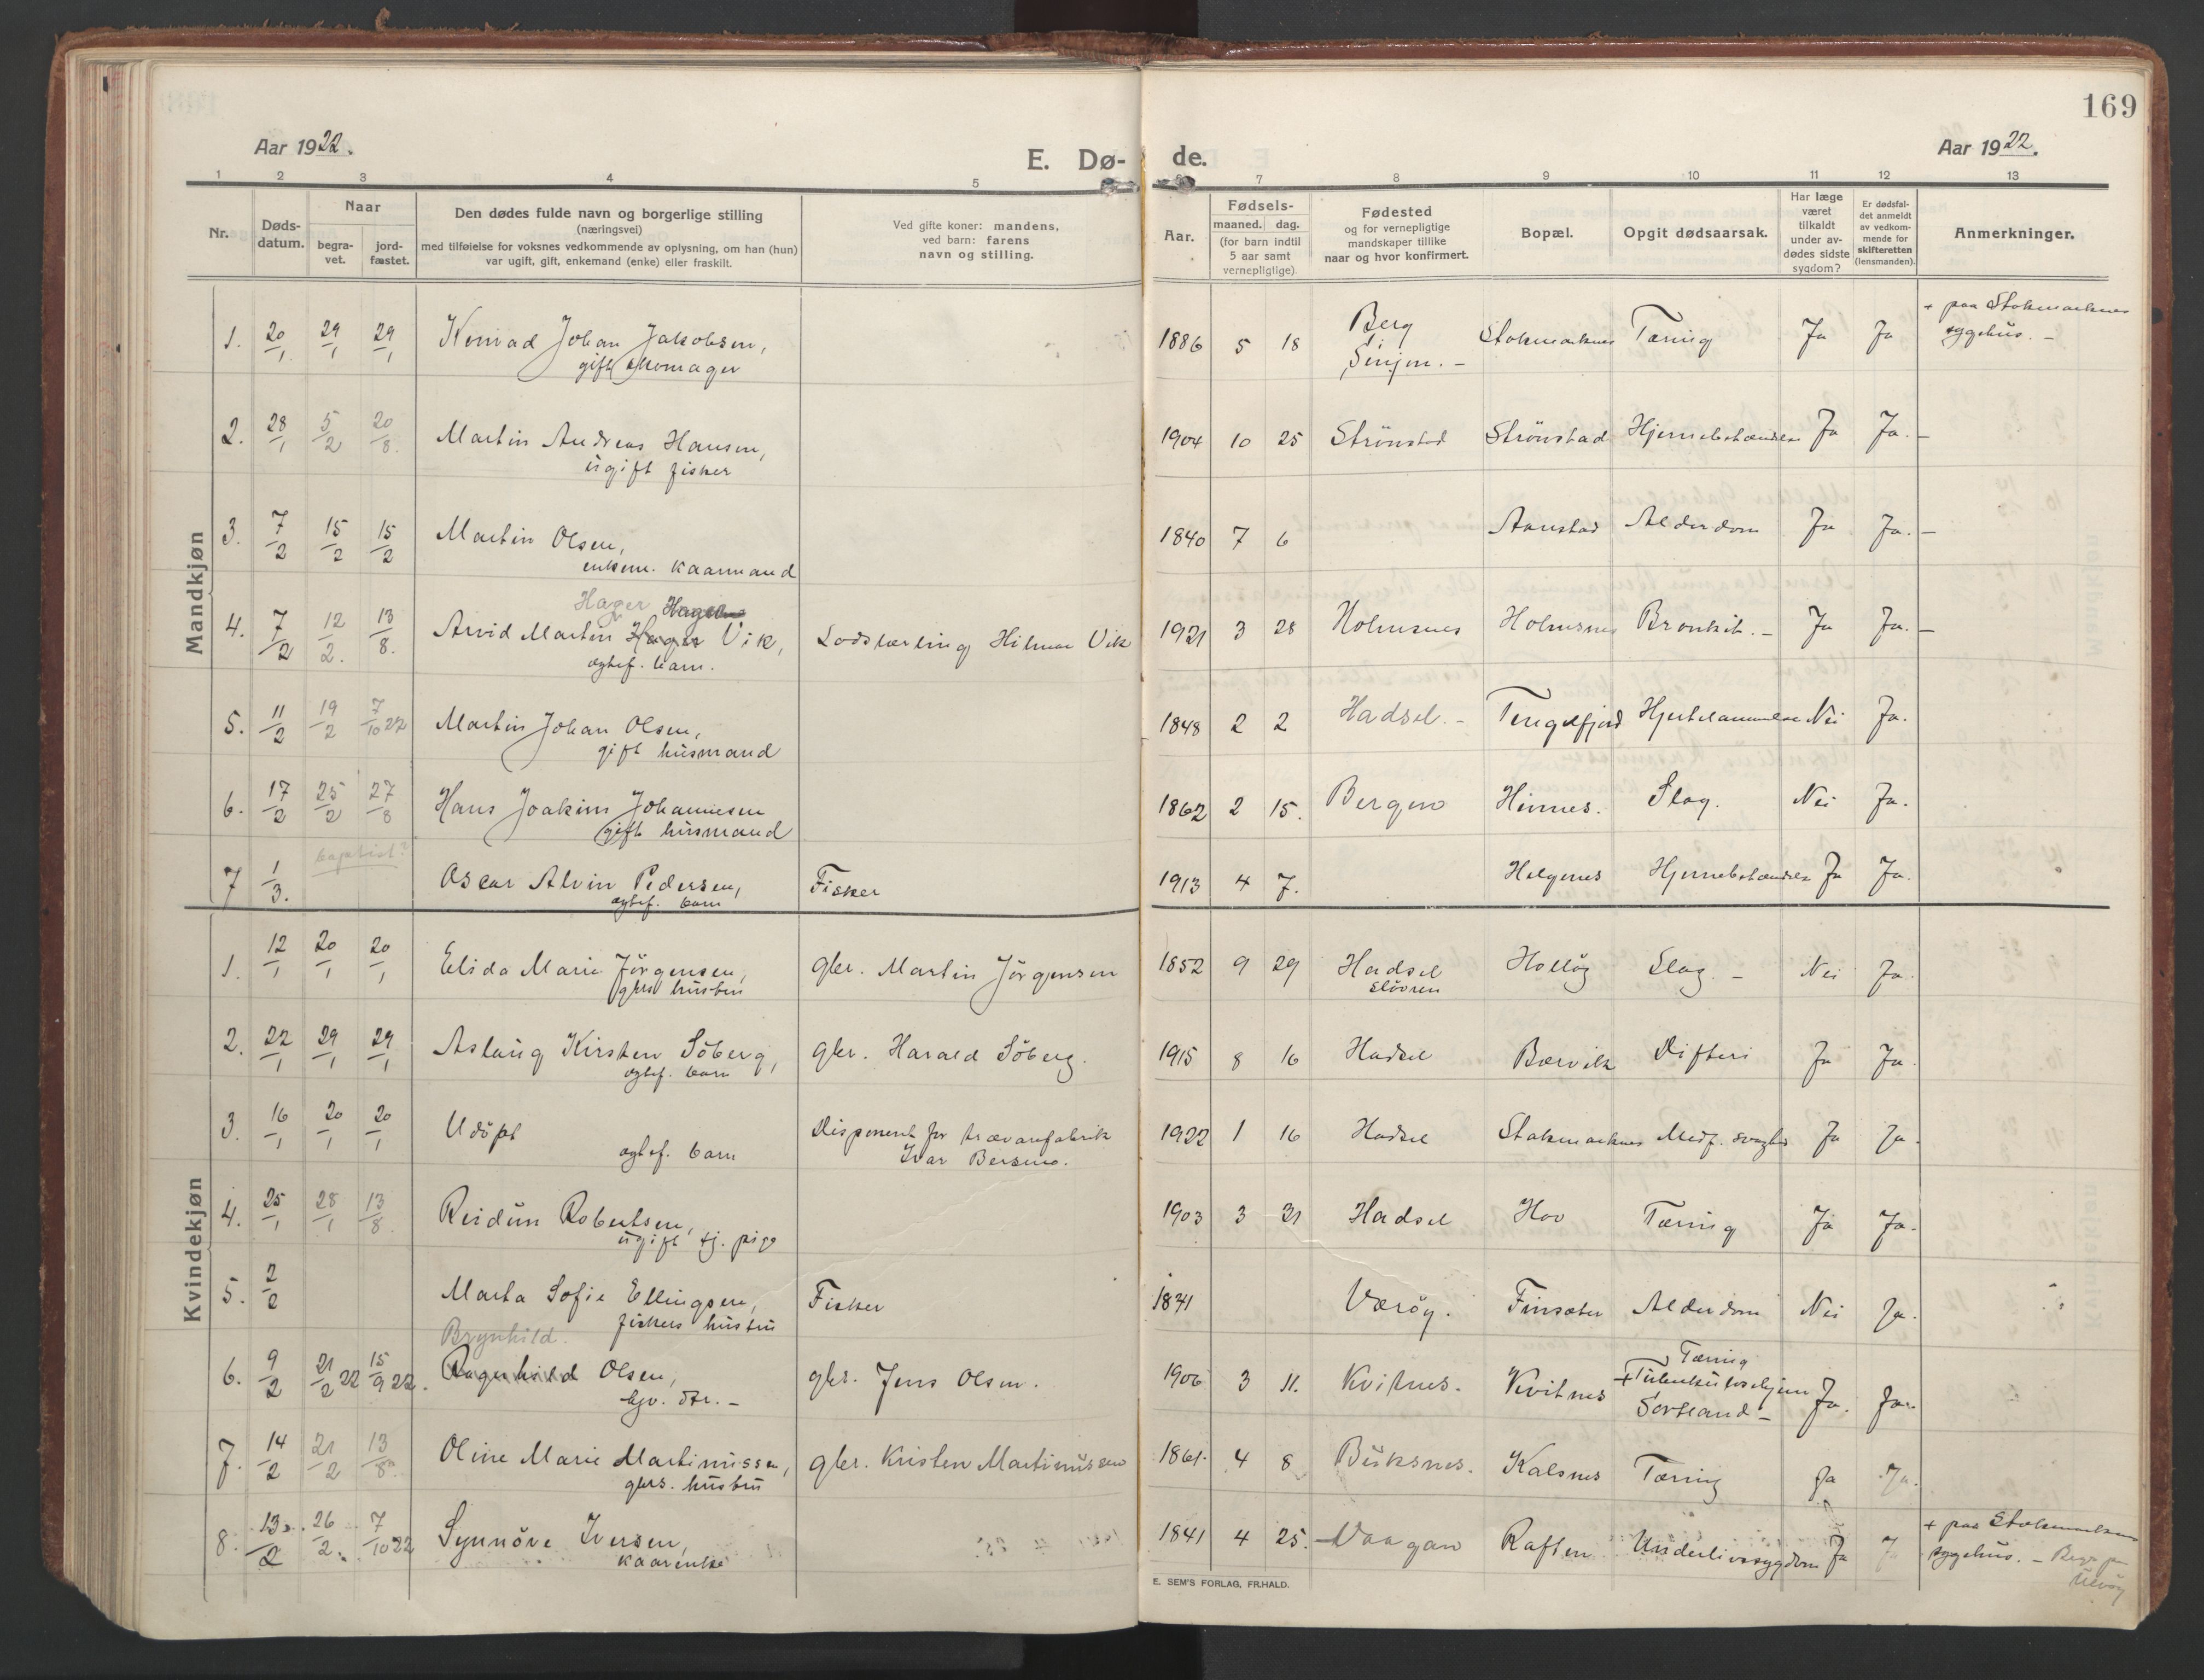 169
Aar 1922. E. Dø- de. Aar 1922.
1 2 3 4 5 6 7 8 9 10 11 12 13
Nr. Døds-datum. Naar begra-vet. jord-fæstet. Den dødes fulde navn og borgerlige stilling (næringsvei) med tilføielse for voksnes vedkommende av oplysning, om han (hun) var ugift, gift, enkemand (enke) eller fraskilt. Ved gifte koner: mandens, ved barn: farens navn og stilling. Aar. Fødsels- maaned. dag. (for barn indtil 5 aar samt vernepligtige). Fødested og for vernepligtige mandskaper tillike naar og hvor konfirmert. Bopæl. Opgit dødsaarsak. Har læge været tilkaldt under av-dødes sidste sygdom? Er dødsfal-det anmeldt av vedkom-mende for skifteretten (lensmanden). Anmerkninger.
Mandkjøn
1. 20/1. 29/1 29/1 Konrad Johan Jakobsen, 1886 5 18 Berg Stokmarknes Tæring Ja Ja + paa Stokmarknes
gift skomager Senjen. - sygehus. -
2. 28/1 5/2 20/8. Martin Andreas Hansen, 1904 10 25 Strönstad Strönstad Hjernebetændelse Ja Ja. -
ugift fisker
3. 7/2 15/2 15/2 Martin Olsen, 1840 7 6 Aanstad Alderdom Ja Ja. -
enkem. kaarmand
Hager
4. 7/2 12/2. 13/8. Arvid Martin Hager Vik, Lodslærling Hilmar Vik 1921 3 28 Holmsnes Holmsnes Bronkit. - Ja Ja. -
ægtef. barn.
5. 11/2 19/2 7/10 22 Martin Johan Olsen, 1848 2 2 Hadsel. - Tengelfjord Hjertelammelse Nei Ja.
gift husmand
6. 17/2 25/2 27/8 Hans Joakim Johannesen 1862 2 15. Bergen Hinnes. Slag. Nei Ja.
gift husmand
baptist?
7 1/3. Oscar Alvin Pedersen, Fisker 1913 4 7. Helgenes Hjernebetændelse Ja Ja.
ægtef. barn
Kvindekjøn
1. 12/1 20/1 20/1 Elida Marie Jörgensen, gbr. Martin Jörgensen 1852 9 29 Hadsel Slag. - Nei Ja.
gbrs hustru
2. 22/1 29/1 29/1 Aslaug Kirsten Söberg, gbr. Harald Söberg. 1915 8 16 Hadsel Borvik Difteri Ja Ja.
ægtef. barn
3. 16/1 20/1 20/1 Udöpt Disponent for trævarefabrik 1922 1 16 Hadsel Stokmarknes Medf. svaghed Ja Ja.
ægtef. barn Ivar Bersens.
4. 25/1 28/1 13/8. Reidun Robertsen, 1903 3 31 Hadsel Hov Tæring Ja Ja.
ugift tj. pige
5. 2/2 Marta Sofie Ellingsen, Fisker 1841 Værøy. Finsæter Alderdom Nei Ja.
fiskers hustru
Brynhild. Tæring
6. 9/2 21/2 22 15/9 22. Ragnhild Olsen, gbr. Jens Olsen. 1906 3 11. Kvitnes. Kvitnes + Tuberkulosehjem Ja. Ja.
gbr. dtr. - Sortland -
7. 14/2 21/2 13/8. Oline Marie Martinussen, gbr. Kristen Martinussen 1861. 4 8 Buksnes. Kalsnes Tæring Ja Ja.
gbrs. hustru
8. 13/2 26/2. 7/10 22 Synnöve Iversen, 1841 4 25. Vaagan Raften Underlivssygdom Ja J + paa Stokmarknes
kaarenke sygehus. -
E. SEM'S FORLAG, FR.HALD.